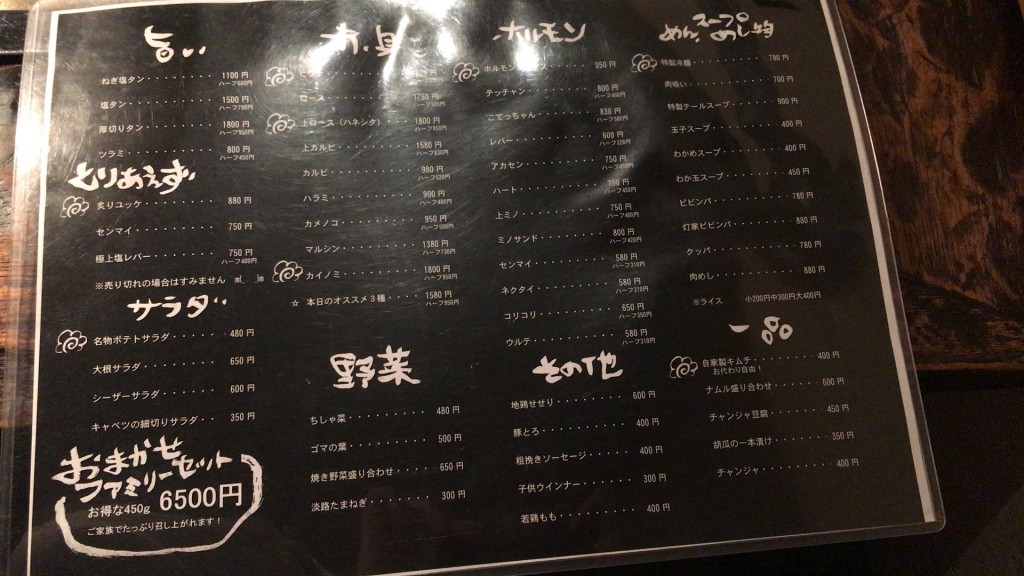 旨い
ねぎ塩タン 1100円
ハーフ600円
塩タン 1500円
ハーフ790円
厚切りタン 1800円
ハーフ950円
ツラミ 800円
ハーフ450円
とりあえず
炙りユッケ 880円
センマイ 750円
極上塩レバー 750円
ハーフ400円
※売り切れの場合はすみません m(_ _)m
サラダ
名物ポテトサラダ 480円
大根サラダ 650円
シーザーサラダ 600円
キャベツの細切りサラダ 350円
おまかせ
ファミリーセット
お得な450g 6500円
ご家族でたっぷり召し上がれます!
ロース 1750円
上ロース(ハネシタ) 1800円
ハーフ950円
上カルビ 1580円
ハーフ830円
カルビ 980円
ハーフ520円
ハラミ 900円
ハーフ480円
カメノコ 950円
ハーフ500円
マルシン 1380円
ハーフ730円
カイノミ 1800円
ハーフ950円
☆ 本日のオススメ3種 1580円
ハーフ950円
野菜
ちしゃ菜 480円
ゴマの葉 500円
焼き野菜盛り合わせ 650円
淡路たまねぎ 300円
ホルモン
ホルモン 950円
テッチャン 800円
こてっちゃん 830円
レバー 600円
ハーフ320円
アカセン 750円
ハート 790円
上ミノ 750円
ハーフ400円
ミノサンド 800円
ハーフ420円
センマイ 580円
ハーフ310円
ネクタイ 580円
ハーフ310円
コリコリ 650円
ハーフ350円
ウルテ 580円
ハーフ310円
その他
地鶏せせり 600円
豚とろ 400円
粗挽きソーセージ 400円
子供ウインナー 300円
若鶏もも 400円
めん、スープ めし物
特製冷麺 780円
肉吸い 700円
特製テールスープ 900円
玉子スープ 400円
わかめスープ 400円
わか玉スープ 450円
ビビンバ 780円
灯家ビビンバ 880円
クッパ 780円
肉めし 880円
※ライス 小200円中300円大400円
一品
自家製キムチ 400円
お代わり自由!
ナムル盛り合わせ 600円
チャンジャ豆腐 450円
胡瓜の一本漬け 350円
チャンジャ 400円